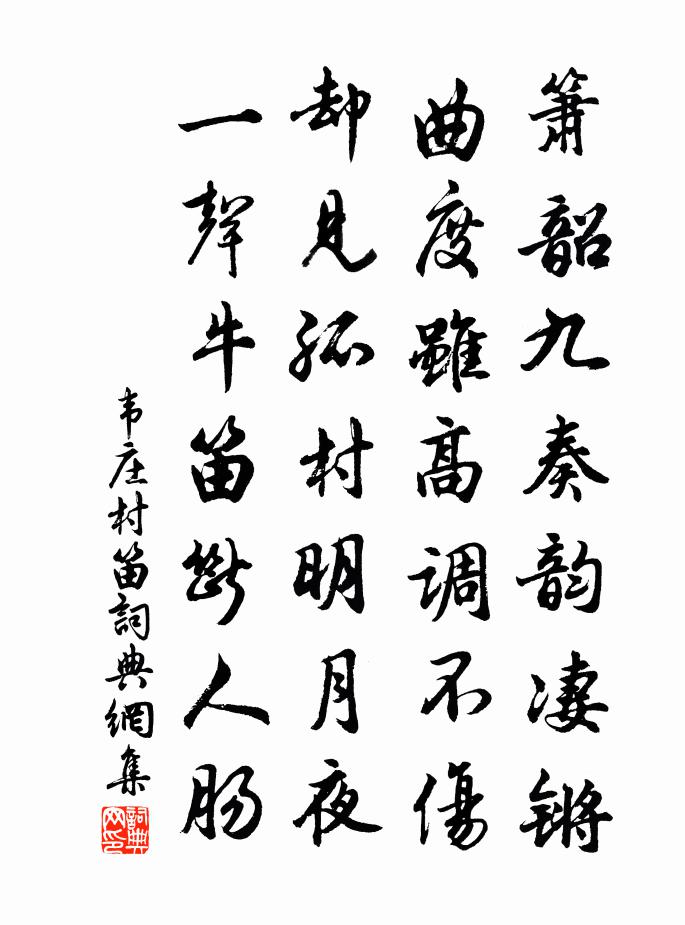 箫韶九奏韵凄锵
曲度雖高调不傷
却見孤村明月夜
一聲牛笛斷人肠
韦庄村笛詞典網集
詞典网印